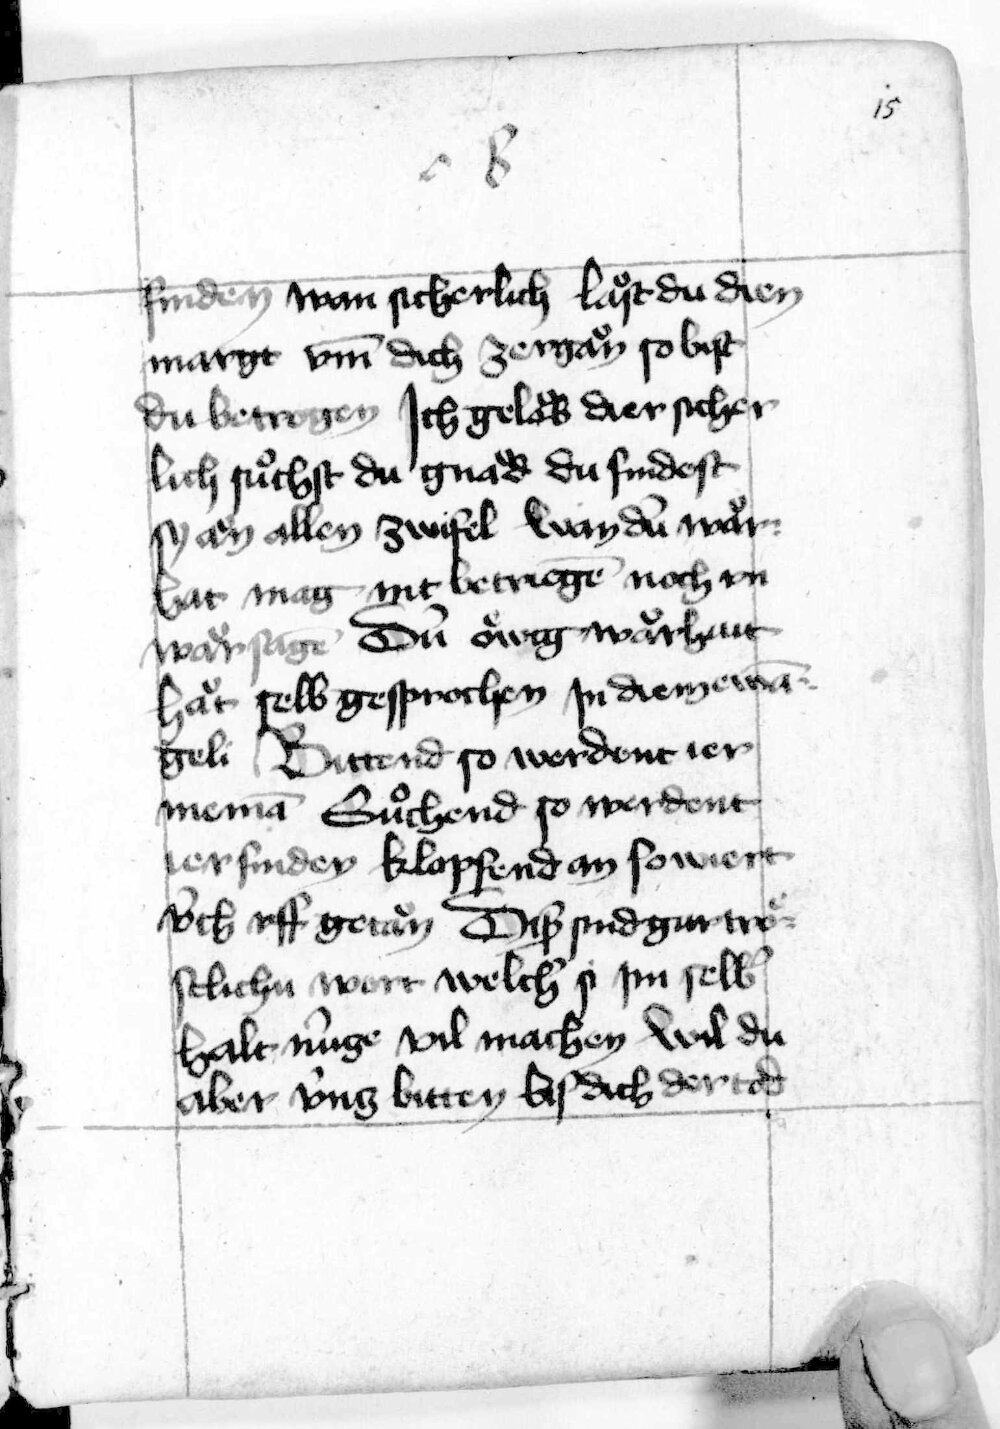 15
finden wan sicherlich laͮst du dien
margt vm̄ dich zergaͮn so bist
du betrogen Ich gelob dier sicher
lich suͦchst du gnaͮd du findest
sy aͮn allen zwifel Wan dū waͮr-
hat mag nit betriegē noch vn
waͮr sagē Dū oͤwig waͮrhait
haͮt selb gesprochen jn diem ewā-
geli Bittend so werdent ier
nemā Suͦchend so werdent
ier finden klopfend an so wiert
v̂ch vff getaͮn Disz sind gar troͤ-
stlichu wort welch si jm selb
halt mūge vil machen Wil du
aber v̂nz bitten bis dich der tod